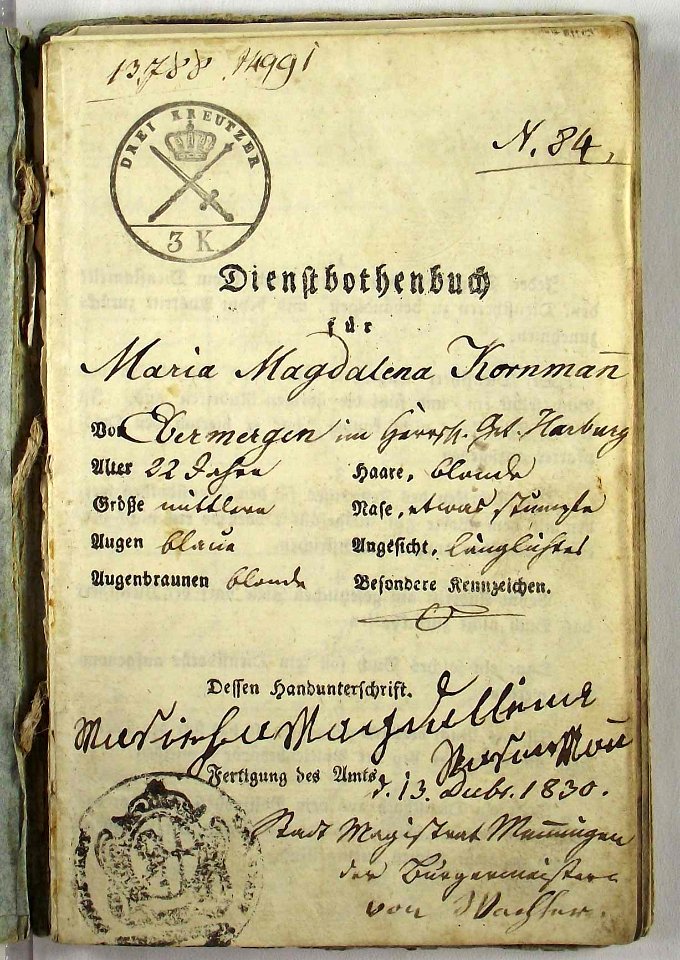 13,788 14991
DREI KREUTZER
3 K.
N. 84,
Dienstbothenbuch
für
Maria Magdalena Kornman̄
Von Ebermergen im Herrsch. Gt. Harburg
Alter 22 Jahre
Haare, blonde
Größe mittlere
Nase, etwas stumpfe
Augen blaue
Angesicht, länglichtes
Augenbraunen blonde
Besondere Kennzeichen.
Dessen Handunterschrift.
Magdallena
Fertigung des Amts
d. 13. Decbr. 1830.
Stadt Magistrat Memmingen
der Bürgermeister
von Wachter.